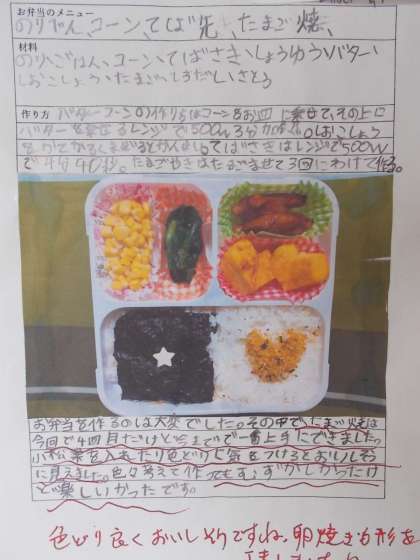 お弁当のメニュー
のりべん、コーン、てばさ先、たまご焼、
材料
のり、ごはん、コーン、てばさき、しょうゆう、バター、
しおこしょう、たまご、しろだし、さとう
作り方 バターコーンの作り方はコーンをお皿に乗せて、その上に
バターを乗せるレンジで500w3分加熱。しおこしょう
をかてかるくまぜるとかんせい。てばさきはレンジで500W
で4分40秒。たまごやきはたまごまぜて3回にわけて作る。
お弁当を作るのは大変でした。その中で、たまご焼は
今回で4回目だけど今までで一番上手にできました。
小松菜を入れたり色どりに気をつけるとおいしそう
に見えました。色々考えて作ってもむずかしかったけ
ど楽しいかったです。
色どり良くおいしそうですね。卵焼きも形を